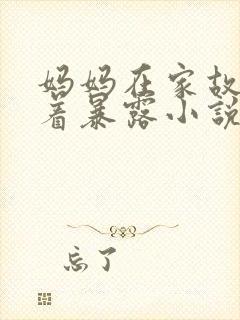 妈妈在家故
着暴露小说
忘了